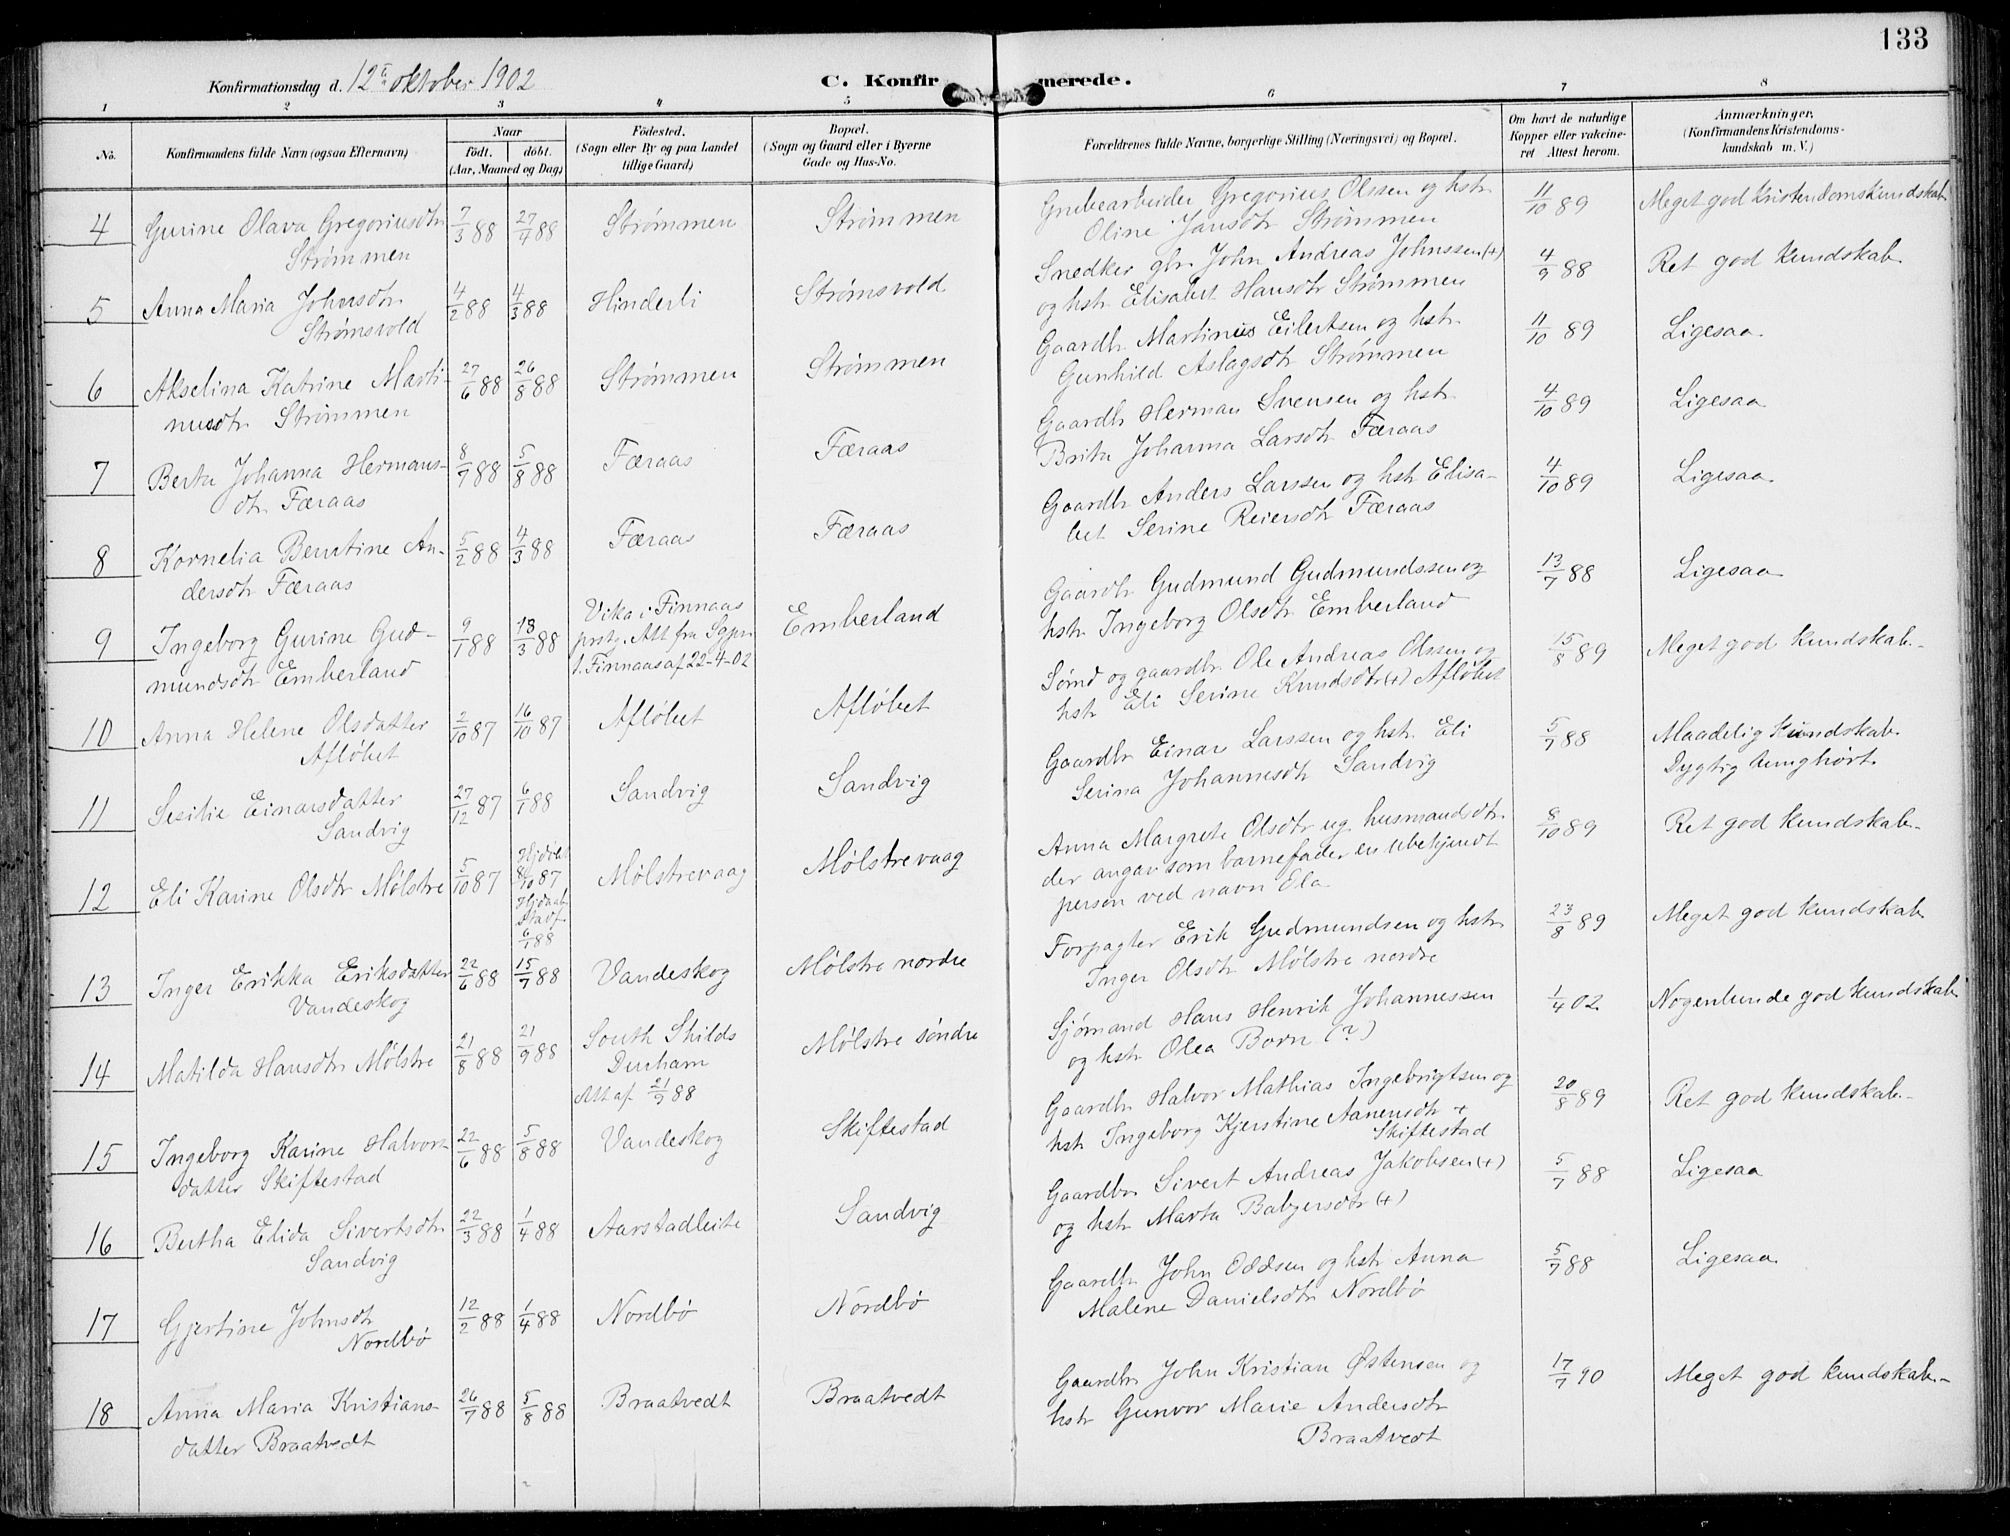 133
Konfirmationsdag d. 12te oktober 1902
C. Konfirmerede.
1 2 3 4 5 6 7 8
No.
Konfirmandens fulde Navn (ogsaa Efternavn)
Naar
födt. döbt.
(Aar, Maaned og Dag)
Födested.
(Sogn eller By og paa Landet
tillige Gaard)
Bopæl.
(Sogn og Gaard eller i Byerne
Gade og Hus-No.
Forældrenes fulde Navne, borgerlige Stilling (Næringsvei) og Bopæl.
Om havt de naturlige
Kopper eller vakcine-
ret Attest herom.
Anmærkninger.
(Konfirmandens Kristendoms-
kundskab m. V.)
4 Gurine Olava Gregoriusdtr 7/3 88 27/4 88 Strømmen Strømmen Grubearbeider Gregorius Olssen og hstr 11/10 89 Meget god Kristendomskundskab
Strømmen Oline Jansdtr Strømmen
5 Anna Maria Johnsdtr 4/2 88 4/3 88 Hinderli Strømsvold Snedker gbr. John Andreas Johnssen (+) 4/9 88 Ret god kundskab
Strømsvold og hstr Elisabet Hansdtr Strømmen
6 Akselina Katrine Marti- 27/6 88 26/8 88 Strømmen Strømmen Gaardbr Martinius Eilertsen og hstr 11/10 89 Ligesaa.
nusdtr Strømmen Gunhild Aslagsdtr Strømmen
7 Berta Johanna Hermans- 8/7 88 5/8 88 Færaas Færaas Gaardbr Herman Svensen og hstr 4/10 89 Ligesaa
dtr Færaas Brita Johanna Larsdtr Færaas
8 Kornelia Berntine An- 5/2 88 4/3 88 Færaas Færaas Gaardbr Anders Larssen og hstr Elisa- 4/10 89 Ligesaa
dersdtr Færaas bet Serine Reiersdtr Færaas
9 Ingeborg Gurine Gud- 9/1 88 18/3 88 Vika i Finnaas Emberland Gaardbr Gudmund Gudmundssen og 13/7 88 Ligesaa
mundsdtr Emberland prstg. Att fra Sgpr hstr Ingeborg Olsdtr Emberland
t. Finnaas af 22-4-02
10 Anna Helene Olsdatter 2/10 87 16/10 87 Afløbet Afløbet Sømd og gaardbr Ole Andreas Olssen og 15/8 89 Meget god kundskab.
Afløbet hstr Eli Serine Knudsdtr (+) Afløbet
11 Sesilie Einarsdatter 27/12 87 6/1 88 Sandvig Sandvig Gaardbr Einar Larssen og hstr Eli 5/7 88 Maadelig kundskab.
Sandvig Serina Johannesdtr Sandvig Dygtig
12 Eli Karine Olsdtr Mølstre 5/10 87 Hjdøbt 8/10 87 Mølstrevaag Mølstrevaag Anna Margrete Olsdtr ug. husmandsdtr. 8/10 89 Ret god kundskab.
6/1 88 der angav som barnefader en ubekjendt
person ved navn Ela
13 Inger Erikka Eriksdatter 22/6 88 15/7 88 Vandeskog Mølstre nordre Forpagter Erik Gudmundsen og hstr 23/8 89 Meget god kundskab
Vandeskog Inger Olsdtr Mølstre nordre
14 Matilda Hansdtr Mølstre 21/8 88 21/9 88 South Skilds Mølstre søndre Sjømand Hans Henrik Johannessen 1/4 02 Nogenlunde god kundskab
Durham og hstr Olea Born (?)
Att af 21/9 88
15 Ingeborg Karine Halvors- 22/6 88 5/8 88 Vandeskog Skiftestad Gaardbr Halvor Mathias Ingebrigtsen og 20/8 89 Ret god kundskab.
datter Skiftestad hstr Ingeborg Kjerstine Aanensdtr +
Skiftestad
16 Bertha Elida Sivertsdtr 22/3 88 1/4 88 Aarstadleite Sandvig Gaardbr Sivert Andreas Jakobsen (+) 5/7 88 Ligesaa
Sandvig og hstr Marta Babjersdtr (+)
17 Gjertine Johnsdtr 12/2 88 1/4 88 Nordbø Nordbø Gaardbr John Oddsen og hstr Anna 5/7 88 Ligesaa
Nordbø Malene Danielsdtr Nordbø
18 Anna Maria Kristians- 26/7 88 5/8 88 Braatvedt Braatvedt Gaardbr John Kristian Østensen og 17/7 90 Meget god kundskab.
datter Braatvedt hstr Gunvor Marie Andersdtr
Braatvedt